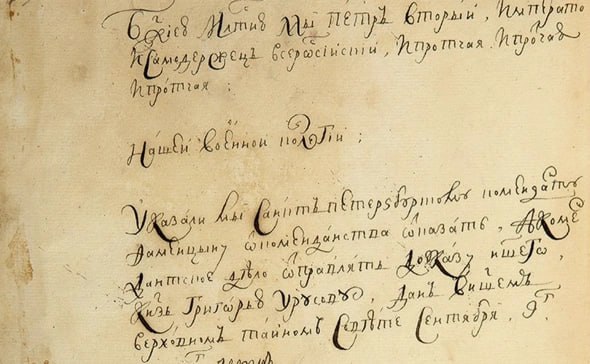 Бжїею Млтїю Мы Пётръ вторый, Императо
И Самодержецъ всероѿсїйскїй, И протчая И протчая
И протчая :
Нашей военной колегїи ;
Указали мы Санктъ петерзбургскому коменданту
Фаминцыну ѿ коменданства ѿказать, А коме
дантское дѣло ѿправлять до указу нашего,
Кнзь Григорью Урусову, Данъ в нашемъ
верховномъ тайномъ Советѣ Сентября, 9г